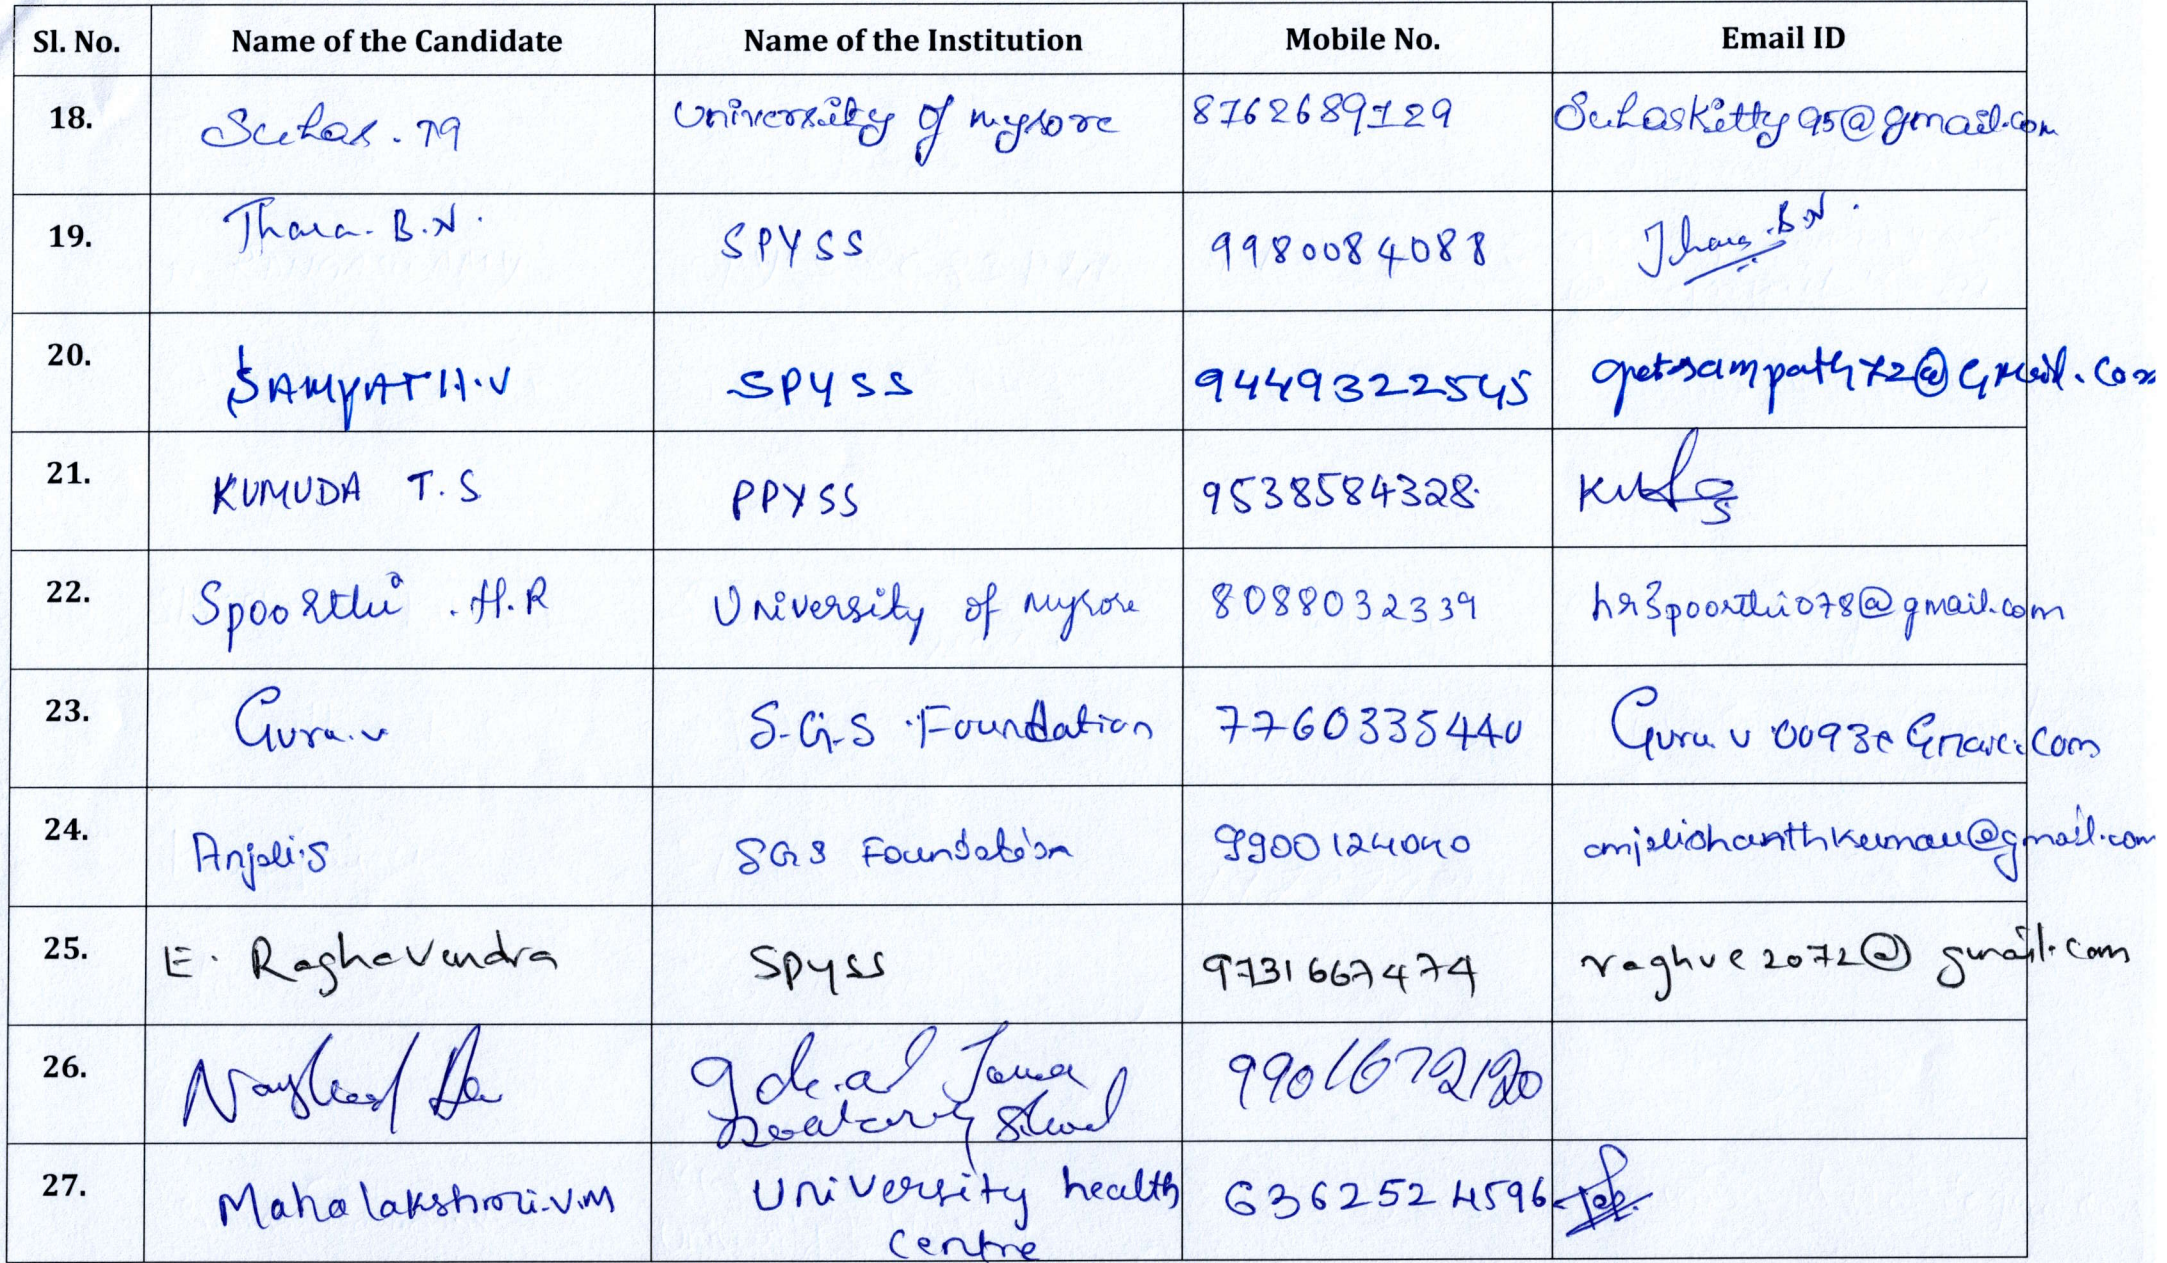 Sl. No. Name of the Candidate Name of the Institution Mobile No. Email ID
18. Suhas. University of mysore 8762689129 SuhasKitty95@gmail.com
19. Thara. B.N. SPYSS 9980084088 Thara.B.N.
20. SAMPATH.V SPYSS 9449322545 getsampath72@Gmail.Com
21. KUMUDA T.S PPYSS 9538584328
22. Spoorthi .H.R University of Mysore 8088032339
23. Guru.v S.G.S Foundation 7760335440
24. Anjali.S SGS Foundation 9900124040 anjalishanthkumar@gmail.com
25. E. Raghavendra SPYSS 9731667474 raghve2072@gmail.com
26.
27. Mahalakshmi.V.M University health 6362524596
Centre